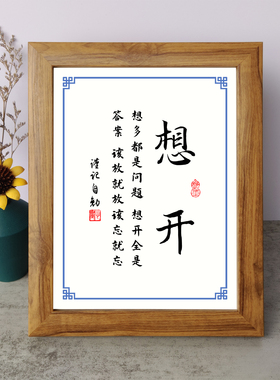 想开
想多都是问题 想开全是
答案 该放就放该忘就忘
谨记自勉